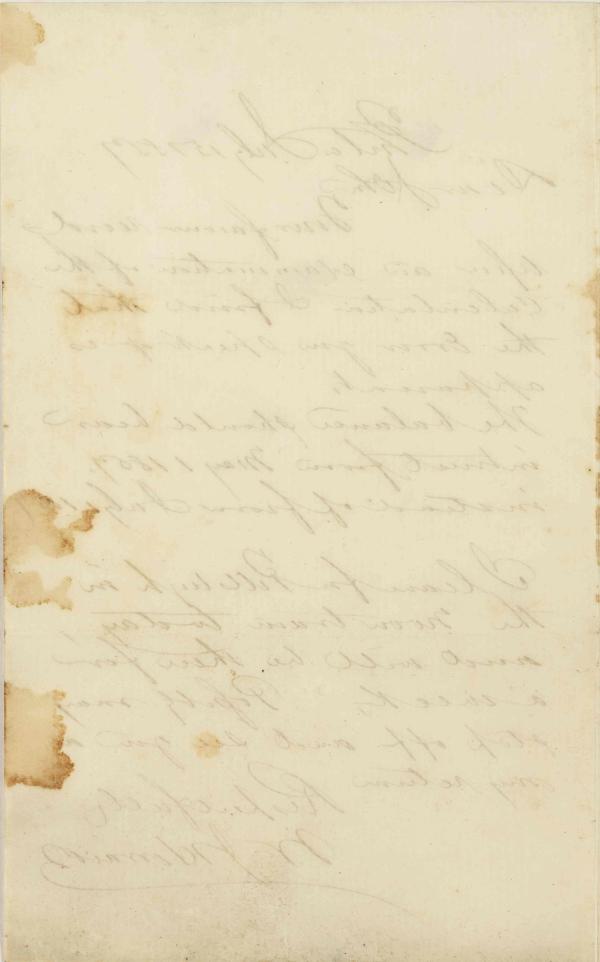 Phila July 15 1857
Dear John
Your favour recd
Upon an examination of the
Calculation I find that
the Error you speak of is
apparent
The balance should bear
interest from May 1 1857
instead of from July 1
I leave for Pittsburgh in
the noon train to day
and will be there for
a week Possibly may
stop off and see you on
my return
Respectfully
W J Howard